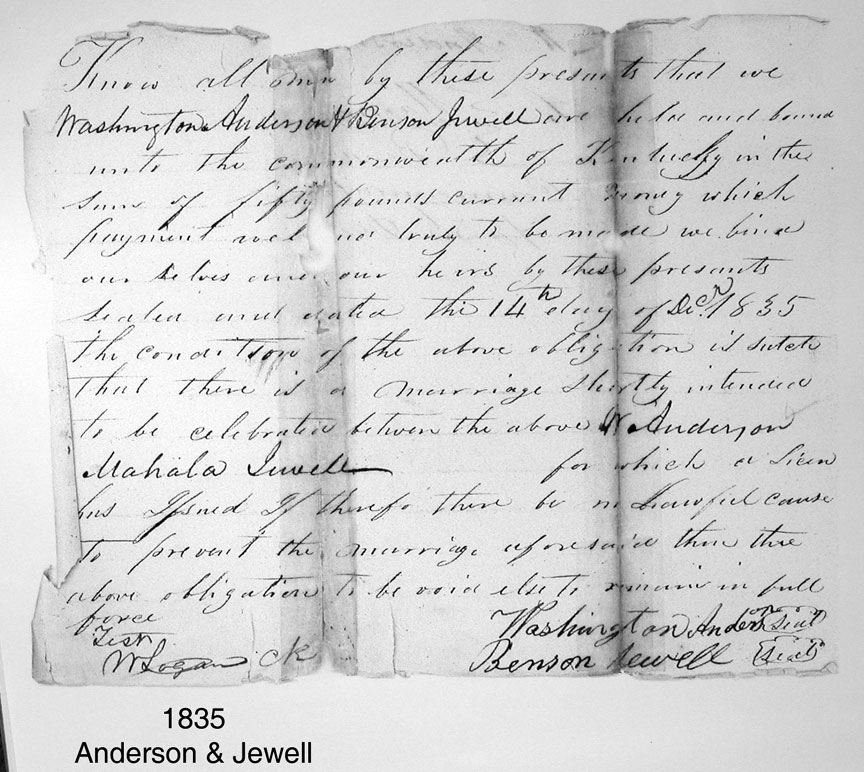 Know all men by these presents that we
Washington Anderson & Benson Jewell are held and bound
unto the commonwealth of Kentucky in the
sum of fifty pounds current money which
payment well and truly to be made we bind
our selves and our heirs by these presents
Sealed and dated the 14th day of Decr. 1835
the condition of the above obligation is sutch
that there is a marriage shortly intended
to be celebrated between the above W Anderson
Mahala Jewell for which a Licen
has Issued If therefo there be no Lawful cause
to prevent the marriage aforesaid then the
above obligation to be void else to remain in full
force
Test
W Logan ck
Washington Anderson (Seal)
Benson Jewell (Seal)
1835
Anderson & Jewell